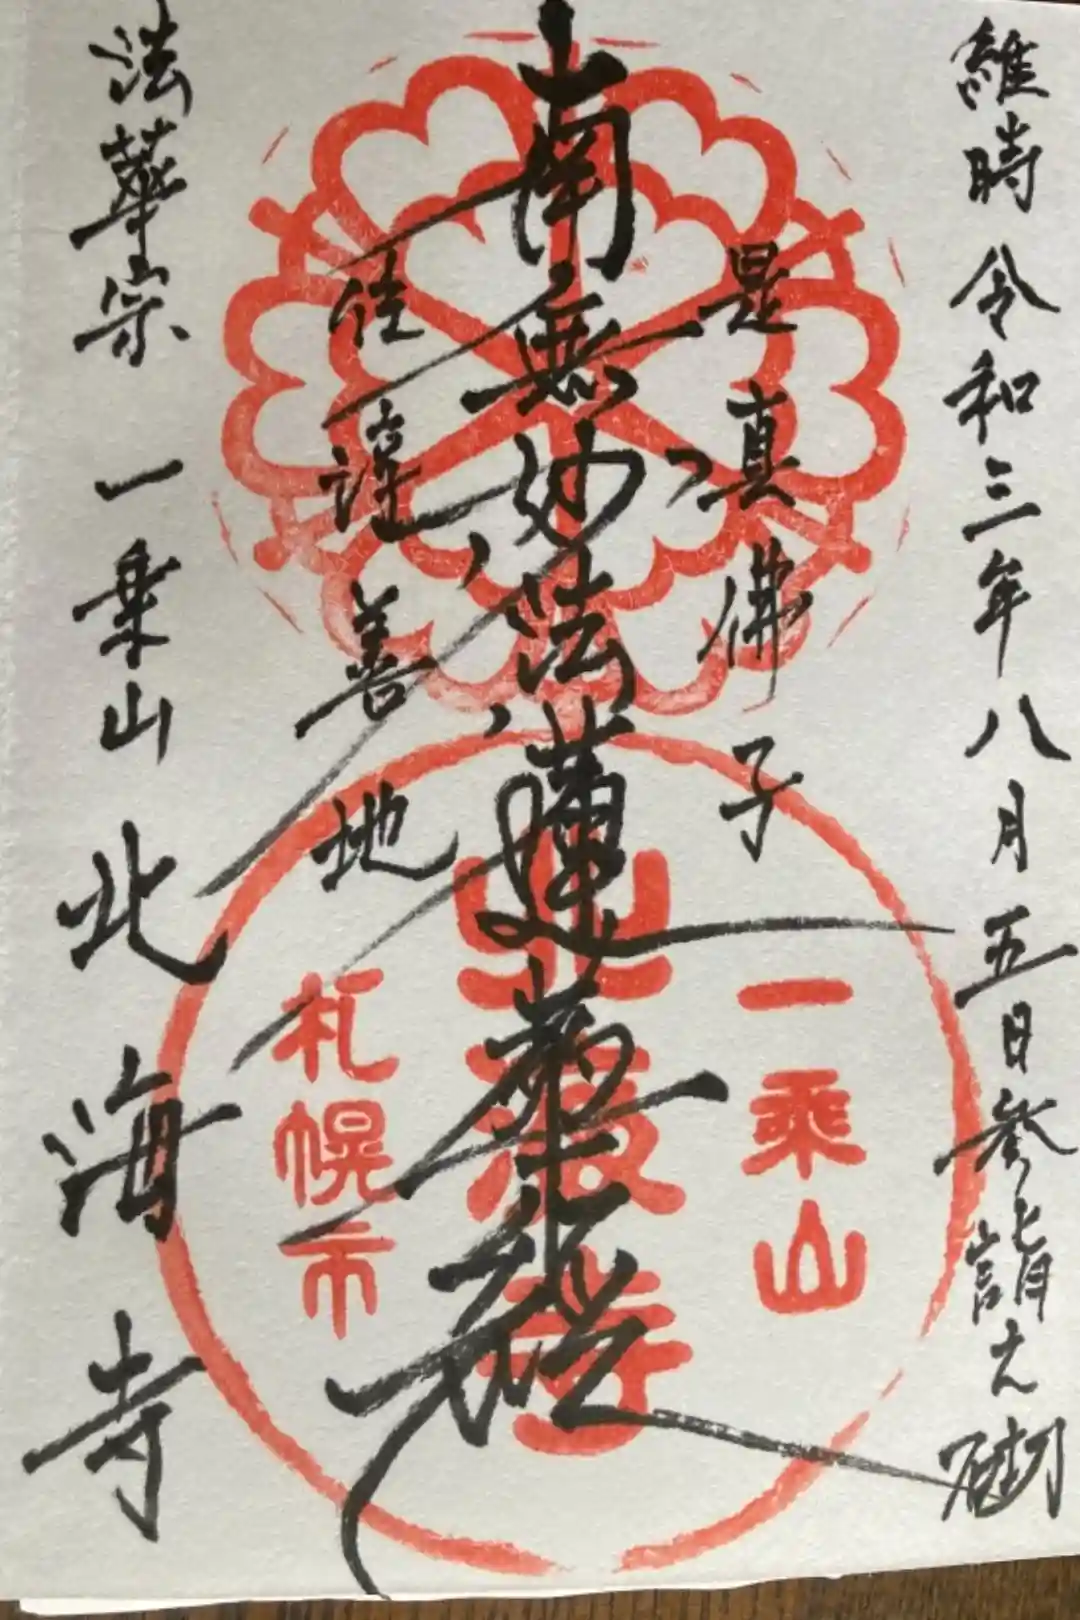 維時 令和三年八月五日参詣之砌
是真佛子
南無妙法蓮華経
住淳善地
法華宗 一乗山 北海寺
一乘山
北海寺
札幌市